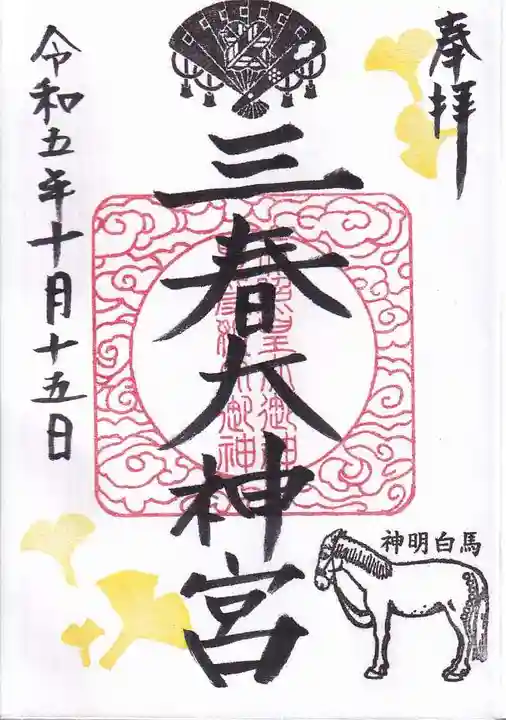 奉拝
三春大神宮
令和五年十月十五日
神明白馬